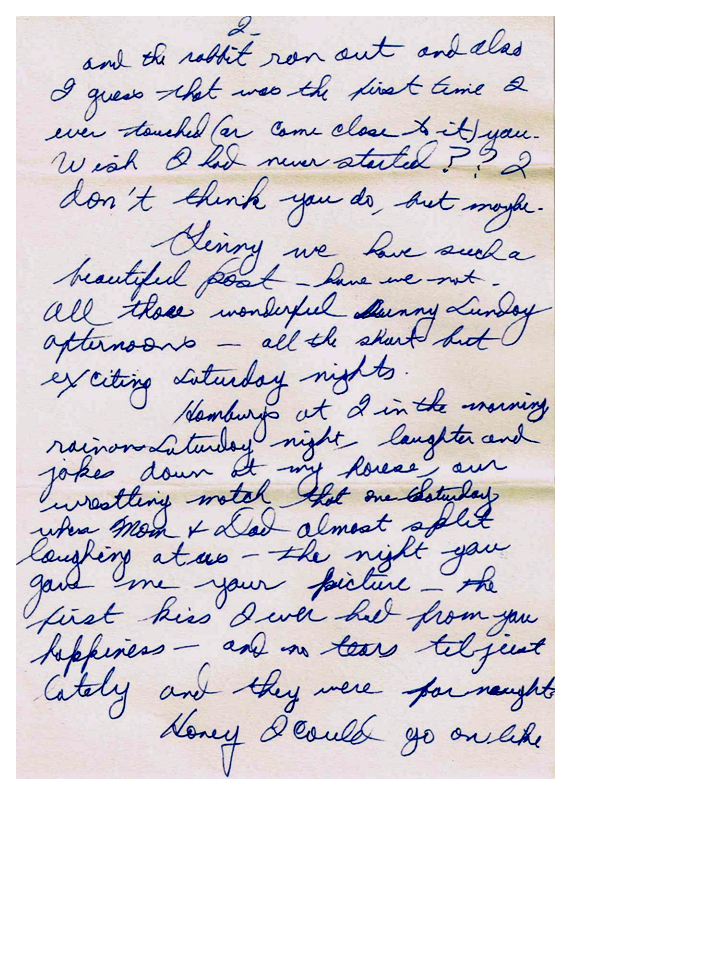 2-
and the rabbit ran out and also
I guess that was the first time I
ever touched (or came close to it) you.
Wish I had never started??? I
don't think you do, but maybe.
Ginny we have such a
beautiful past - have we not.
All those wonderful Sunny Sunday
afternoons - all the short but
exciting Saturday nights.
Hamburgs at 2 in the morning
Saturday night, laughter and
jokes down at my house, our
wrestling match that one Saturday
when Mom & Dad almost split
laughing at us - the night you
gave me your picture - the
first kiss I ever had from you
happiness - and no tears til just
lately and they were for naught
Honey I could go on like